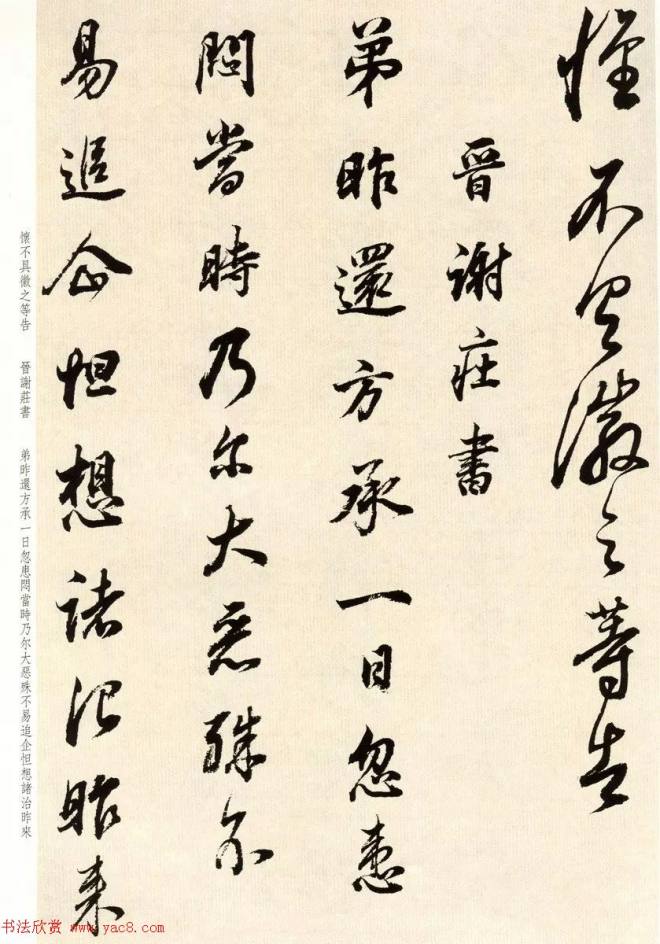 懷不具徽之等告
晉謝莊書
弟昨還方承一日忽患
悶當時乃尔大惡殊不
易追企怛想諸治昨来
懷不具徽之等告 晉謝莊書 弟昨還方承一日忽患悶當時乃尔大惡殊不易追企怛想諸治昨來
书法欣赏 www.yac8.com